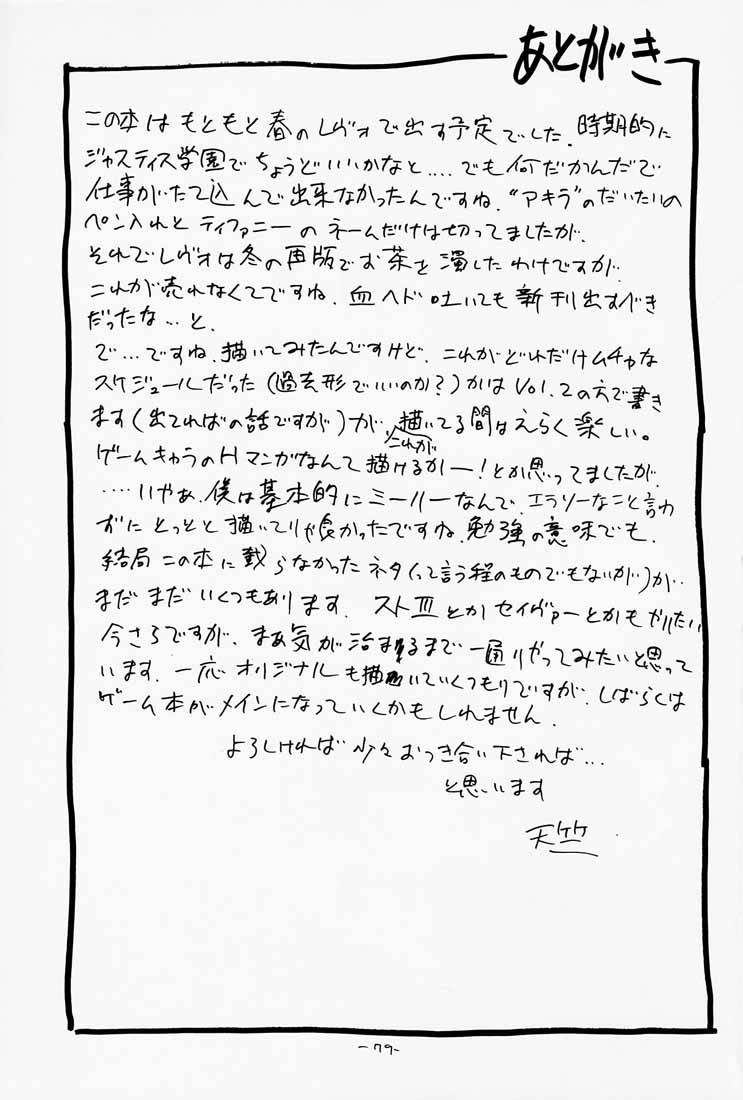 あとがき
この本はもともと春のレヴォで出す予定でした。時期的に
ジャスティス学園でちょうどいいかなと‥‥でも何だかんだで
仕事がたて込んで出来なかったんですね。“アキラ”のだいたいの
ペン入れとティファニーのネームだけは切ってましたが。
それでレヴォは冬の再版でお茶を濁したわけですが
これが売れなくてですね。血ヘド吐いても新刊出すべき
だったな‥と。
で…ですね。描いてみたんですけど。これがどれだけムチャな
スケジュールだった(過去形でいいのか?)かはVol.2の方で書き
ます(出てればの話ですが)が、描いてる間はえらく楽しい。
これが
ゲームキャラのHマンガなんて描けるかー!とか思ってましたが
‥‥いやぁ、僕は基本的にミーハーなんで、エラソーなこと言わ
ずにとっとと描いてりゃ良かったですね。勉強の意味でも。
結局この本に載らなかったネタ(って言う程のものでもないが)が
まだまだいくつもあります。ストⅢとかセイヴァーとかもやりたい
今さらですが、まぁ気が治まるまで一通りやってみたいと思って
います。一応オリジナルも描いていくつもりですが、しばらくは
ゲーム本がメインになっていくかもしれません。
よろしければ少々おつき合い下されば…
と思います
天竺
-79-